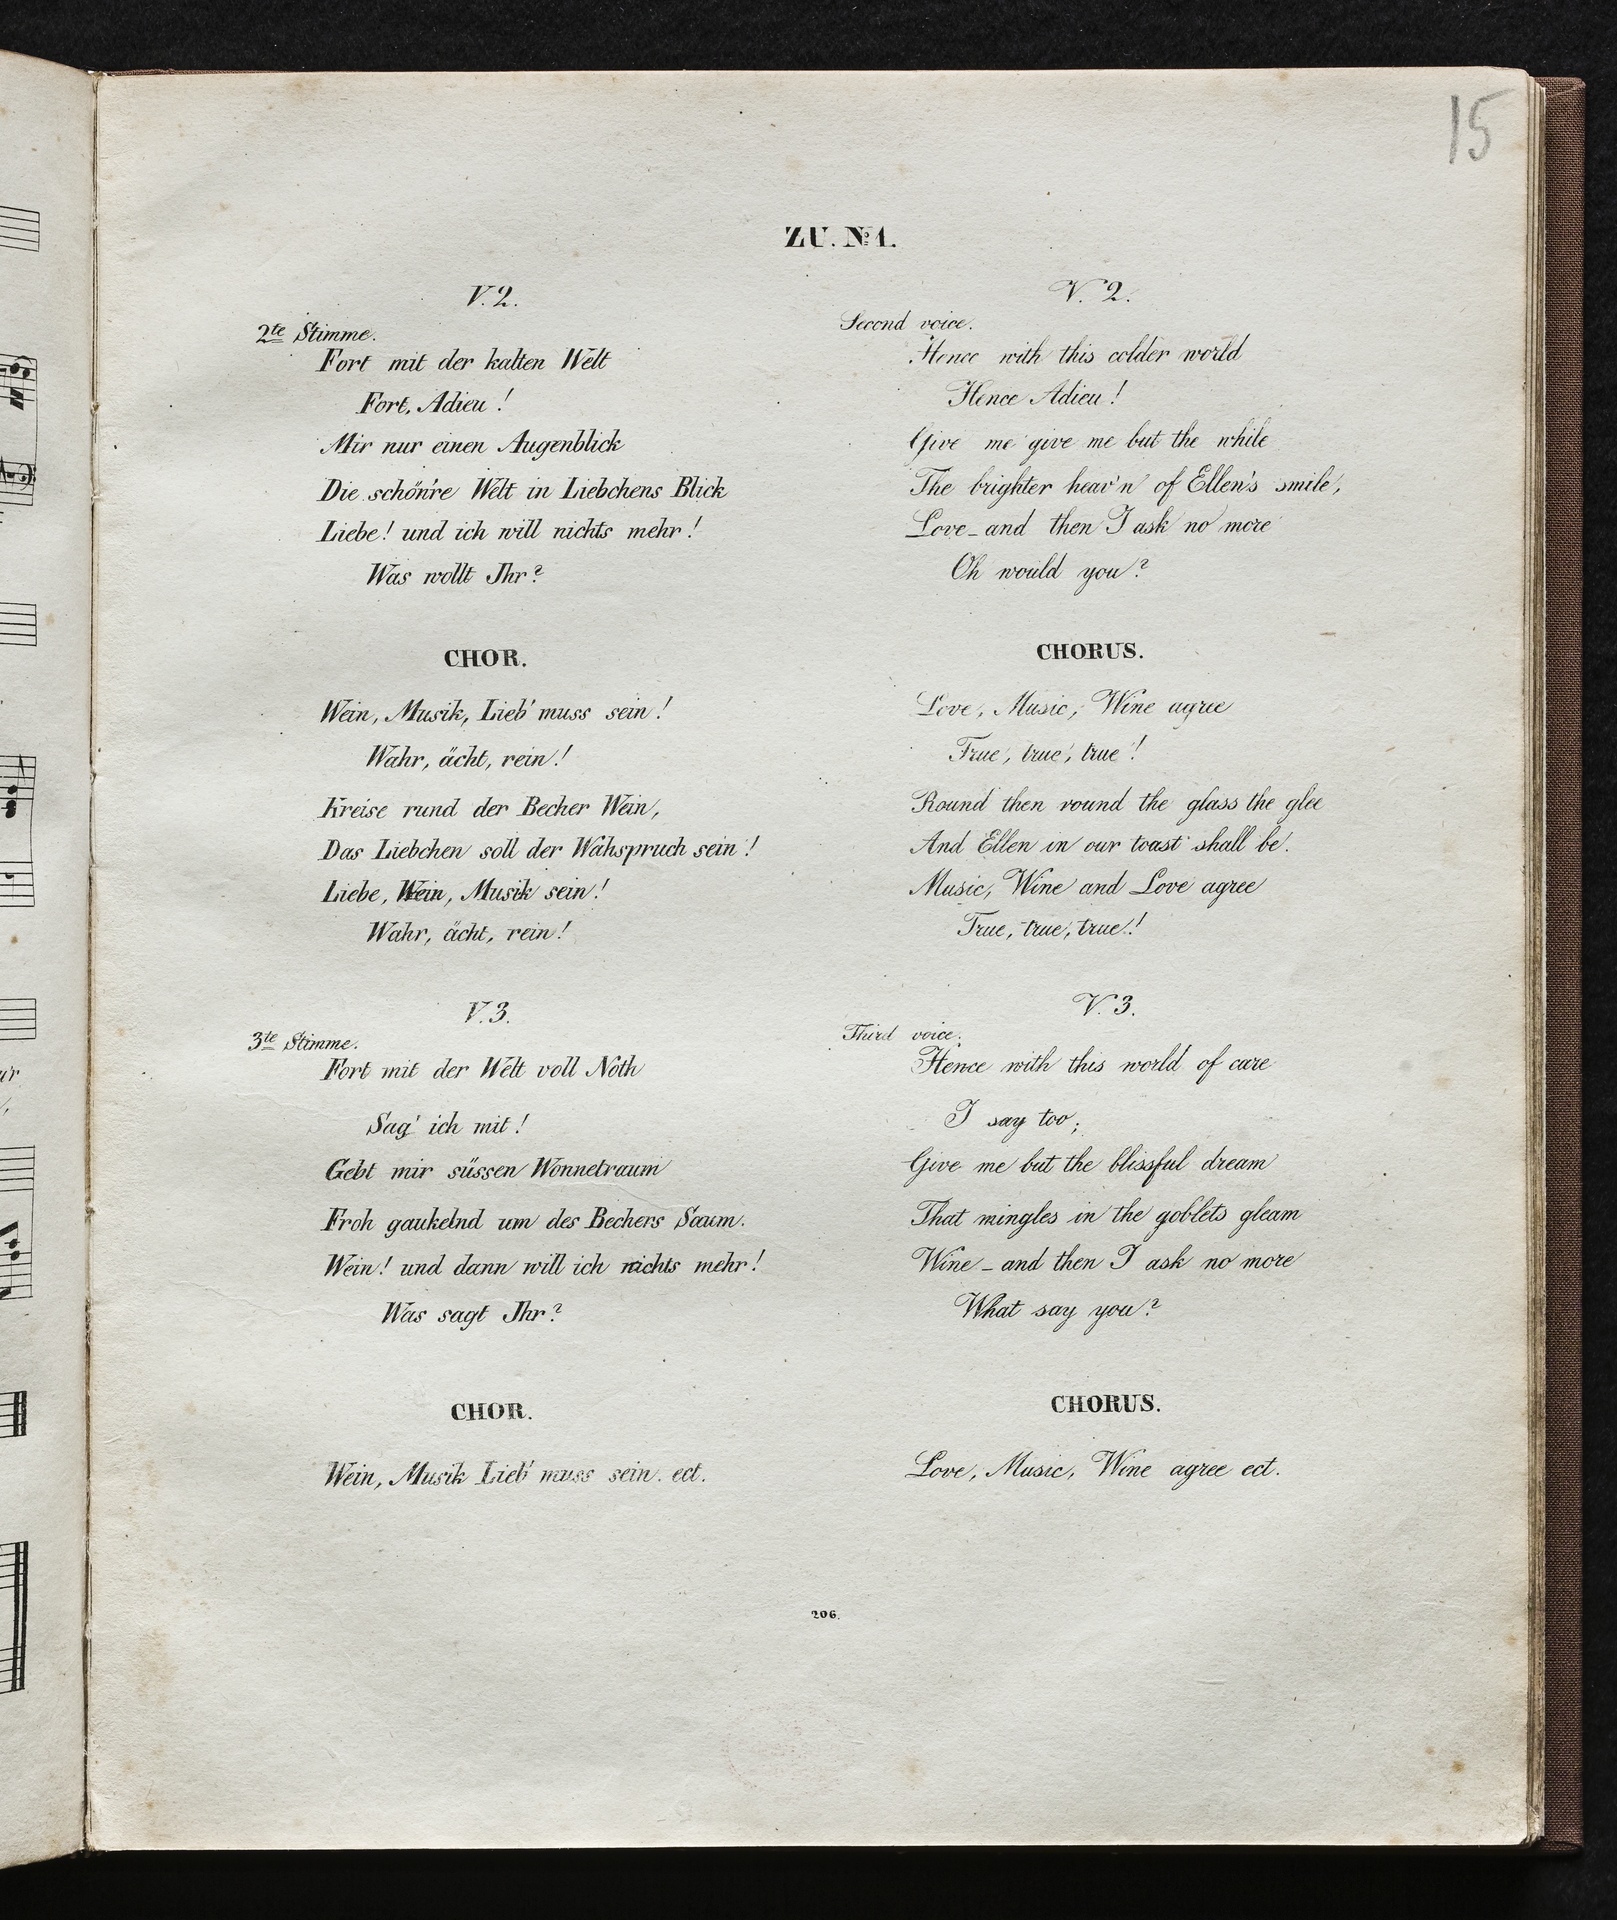 15
ZU. No 1.
V. 2.
2te Stimme.
Fort mit der kalten Welt
Fort, Adieu!
Mir nur einen Augenblick
Die schön're Welt in Liebchens Blick
Liebe! und ich will nichts mehr!
Was wollt Ihr?
CHOR.
Wein, Musik, Lieb' muss sein!
Wahr, ächt, rein!
Kreise rund der Becher Wein,
Das Liebchen soll der Wahspruch sein!
Liebe, Wein, Musik sein!
Wahr, ächt, rein!
V. 3.
3te Stimme.
Fort mit der Welt voll Noth
Sag' ich mit!
Gebt mir süssen Wonnetraum
Froh gaukelnd um des Bechers Saum.
Wein! und dann will ich nichts mehr!
Was sagt Ihr?
CHOR.
Wein, Musik Lieb' muss sein. ect.
V. 2.
Second voice.
Hence with this colder world
Hence Adieu!
Give me give me but the while
The brighter heav'n of Ellen's smile,
Love_and then I ask no more
Oh would you?
CHORUS.
Love, Music, Wine agree
True, true, true!
Round then round the glass the glee
And Ellen in our toast shall be.
Music, Wine and Love agree
True, true, true!
V. 3.
Third voice.
Hence with this world of care
I say too;
Give me but the blissful dream
That mingles in the goblets gleam
Wine_and then I ask no more
What say you?
CHORUS.
Love, Music, Wine agree ect.
206.